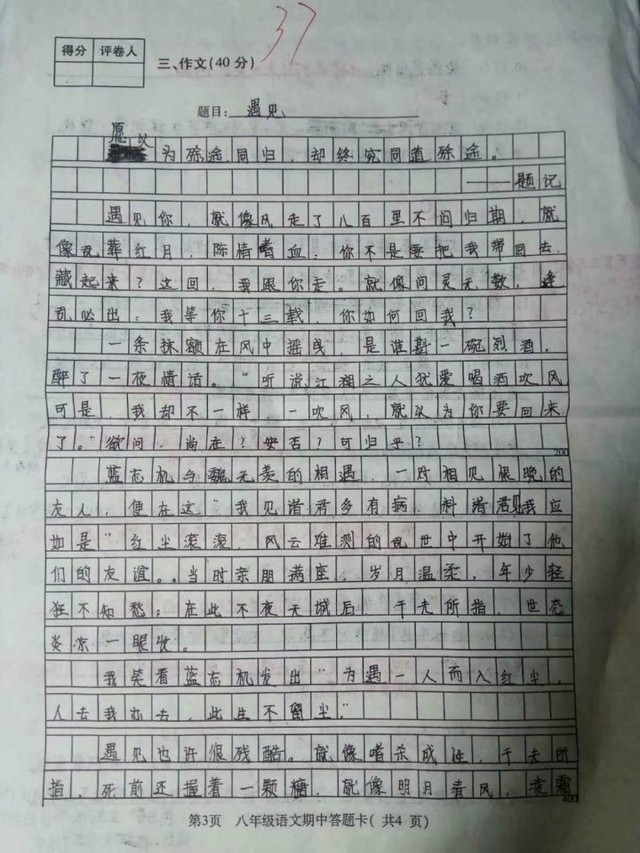 37
得分 评卷人
三、作文(40分)
题目: 遇见
愿以
为殊途同归,却终究同道殊途。
——题记
遇见你,就像风走了八百里不问归期,就
像乱葬红月,陈情嗜血:你不是要把我带回去
藏起来?这回,我跟你走。就像问灵无数,逢
乱必出:我等你十三载,你如何回我?
一条抹额在风中摇曳,是谁斟一碗烈酒,
醉了一夜情话。"听说江湖之人犹爱喝酒吹风
可是,我却不一样,一吹风,就以为你要回来
了。"欲问,尚在?安否?可归乎?
200
蓝忘机与魏无羡的相遇,一对相见恨晚的
友人,便在这"我见诸君多有病,料诸君见我应
如是"红尘滚滚,风云难测的乱世中开始了他
们的友谊。当时亲朋满座,岁月温柔,年少轻
狂不知愁;在此不夜天城后,千夫所指,世态
炎凉一眼收。
我笑看蓝忘机发出"为遇一人而入红尘,
人去我亦去,此生不留尘。"
遇见也许很残酷。就像嗜杀成性,千夫所
指,死前还握着一颗糖,就像明月清风,凌霜
400
第3页 八年级语文期中答题卡( 共4 页)